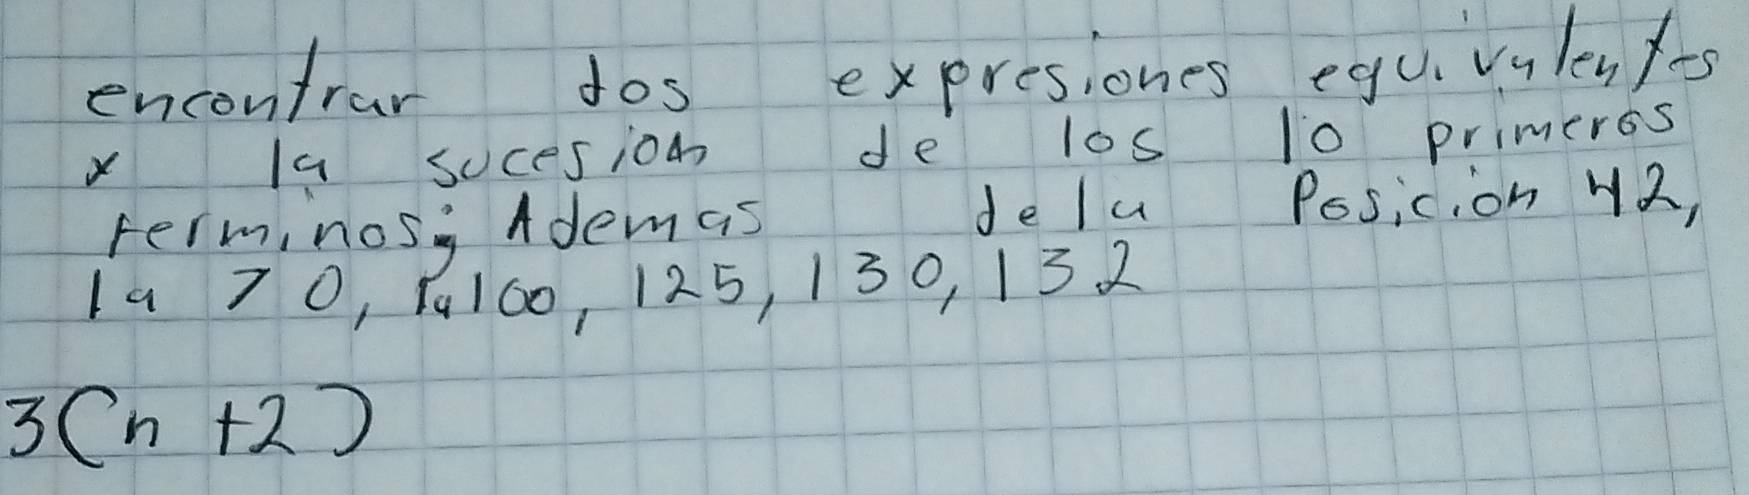 encontrar dos expresiones equivalentes
y la sucesion de los 10 primeros
terminos; Ademas de la Posicion 42,
la 70, la 100, 125, 130, 132
3(n +2)